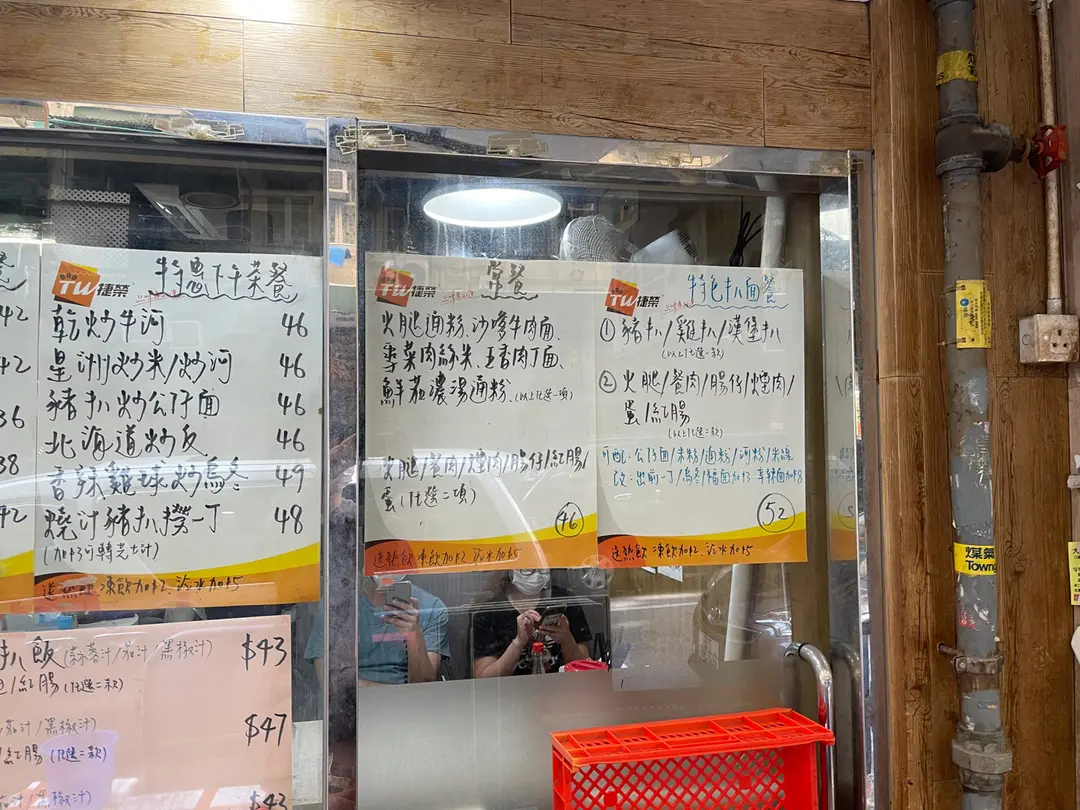 42
42
36
38
42
TW捷榮
特惠下午茶餐
乾炒牛河 46
星洲炒米/炒河 46
豬扒炒公仔面 46
北海道炒反 46
香辣雞球炒烏冬 49
燒汁豬扒撈一丁 48
(加$3可轉芝士汁)
送熱飲 凍飲加$2. 汽水加$5
TW捷榮
常餐
火腿通粉、沙嗲牛肉面、
雪菜肉絲米、五香肉丁面、
鮮茄濃湯通粉、(以上任選一項)
火腿/餐肉/煙肉/腸仔/紅腸/
蛋(任選二項)
46
送熱飲 凍飲加$2 汽水加$5
TW捷榮
特色扒面餐
① 豬扒/雞扒/漢堡扒
(以上任選一款)
② 火腿/餐肉/腸仔/煙肉/
蛋/紅腸
(以上任選二款)
可配:公仔面/米粉/通粉/河粉/
改:出前一丁/烏冬/
52
送熱飲 凍飲加$2. 汽水加$5
扒飯 /茄汁/黑椒汁) $43
/紅腸(任選二款)
茄汁/黑椒汁)
$47
紅腸(任選二款)
/黑椒汁) $43
煤氣
Town